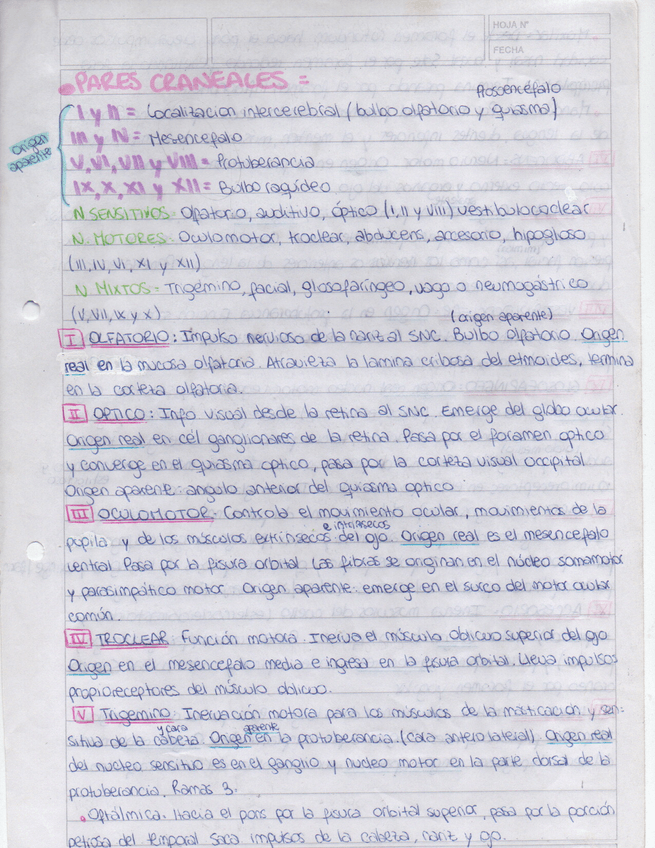 HOJA Nº
FECHA
• PARES CRANEALES =
Prosoencéfalo
Origen aparente
I y II = Localización intercerebral (bulbo olfatorio y quiasma)
III y IV = Mesencefalo
V, VI, VII y VIII = Protuberancia
IX, X, XI y XII = Bulbo raquídeo
N SENSITIVOS: Olfatorio, auditivo, óptico (I, II y VIII) vestibulococlear
N. MOTORES: Oculomotor, troclear, abducens, accesorio, hipogloso
(III, IV, VI, XI y XII)
N MIXTOS = Trigémino, facial, glosofaríngeo, vago o neumogástrico
(V, VII, IX y X)
(origen aparente)
I OLFATORIO: Impulso nervioso de la nariz al SNC. Bulbo olfatorio. Origen
real en la mucosa olfatoria. Atravieza la lamina cribosa del etmoides, termina
en la corteza olfatoria.
II OPTICO: Info visual desde la retina al SNC. Emerge del globo ocular.
Origen real en cél ganglionares de la retina. Pasa por el foramen optico
y converge en el quiasma optico, pasa por la corteza visual occipital
Origen aparente: angulo anterior del quiasma optico
III OCULOMOTOR: Controla el movimiento ocular, movimientos de la
e intrínsecos
pupila y de los músculos extrínsecos del ojo. Origen real es el mesencefalo
ventral. Pasa por la fisura orbital. Las fibras se originan en el núcleo somamotor
y parasimpático motor. Origen aparente: emerge en el surco del motor ocular
común.
IV TROCLEAR Función motora. Inerva el músculo oblicuo superior del ojo
Origen en el mesencefalo media e ingresa en la fisura orbital. Lleva impulsos
propioreceptores del músculo oblicuo.
V Trigemino: Inervación motora para los músculos de la masticación y sen-
y cara aparente
sitiva de la cabeza. Origen en la protuberancia. (cara antero lateral). Origen real
del nucleo sensitivo es en el ganglio y nucleo motor en la parte dorsal de la
protuberancia. Ramas 3.
• Oftálmica. Hacia el pons por la fisura orbital superior, pasa por la porción
petrosa del temporal saca impulsos de la cabeza, nariz y ojo.